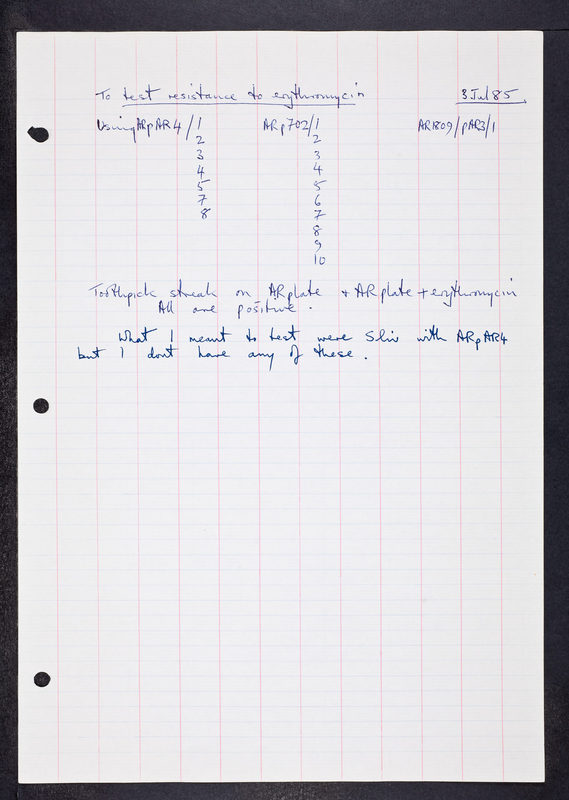 To test resistance to erythromycin 3 Jul 85
Using ARpAR4/1 ARp702/1 AR1809/pAR3/1
2 2
3 3
4 4
5 5
7 6
8 7
8
9
10
Toothpick streak on AR plate + AR plate + erythromycin
All are positive.
What I meant to test were Sliv with ARpAR4
but I dont have any of these.